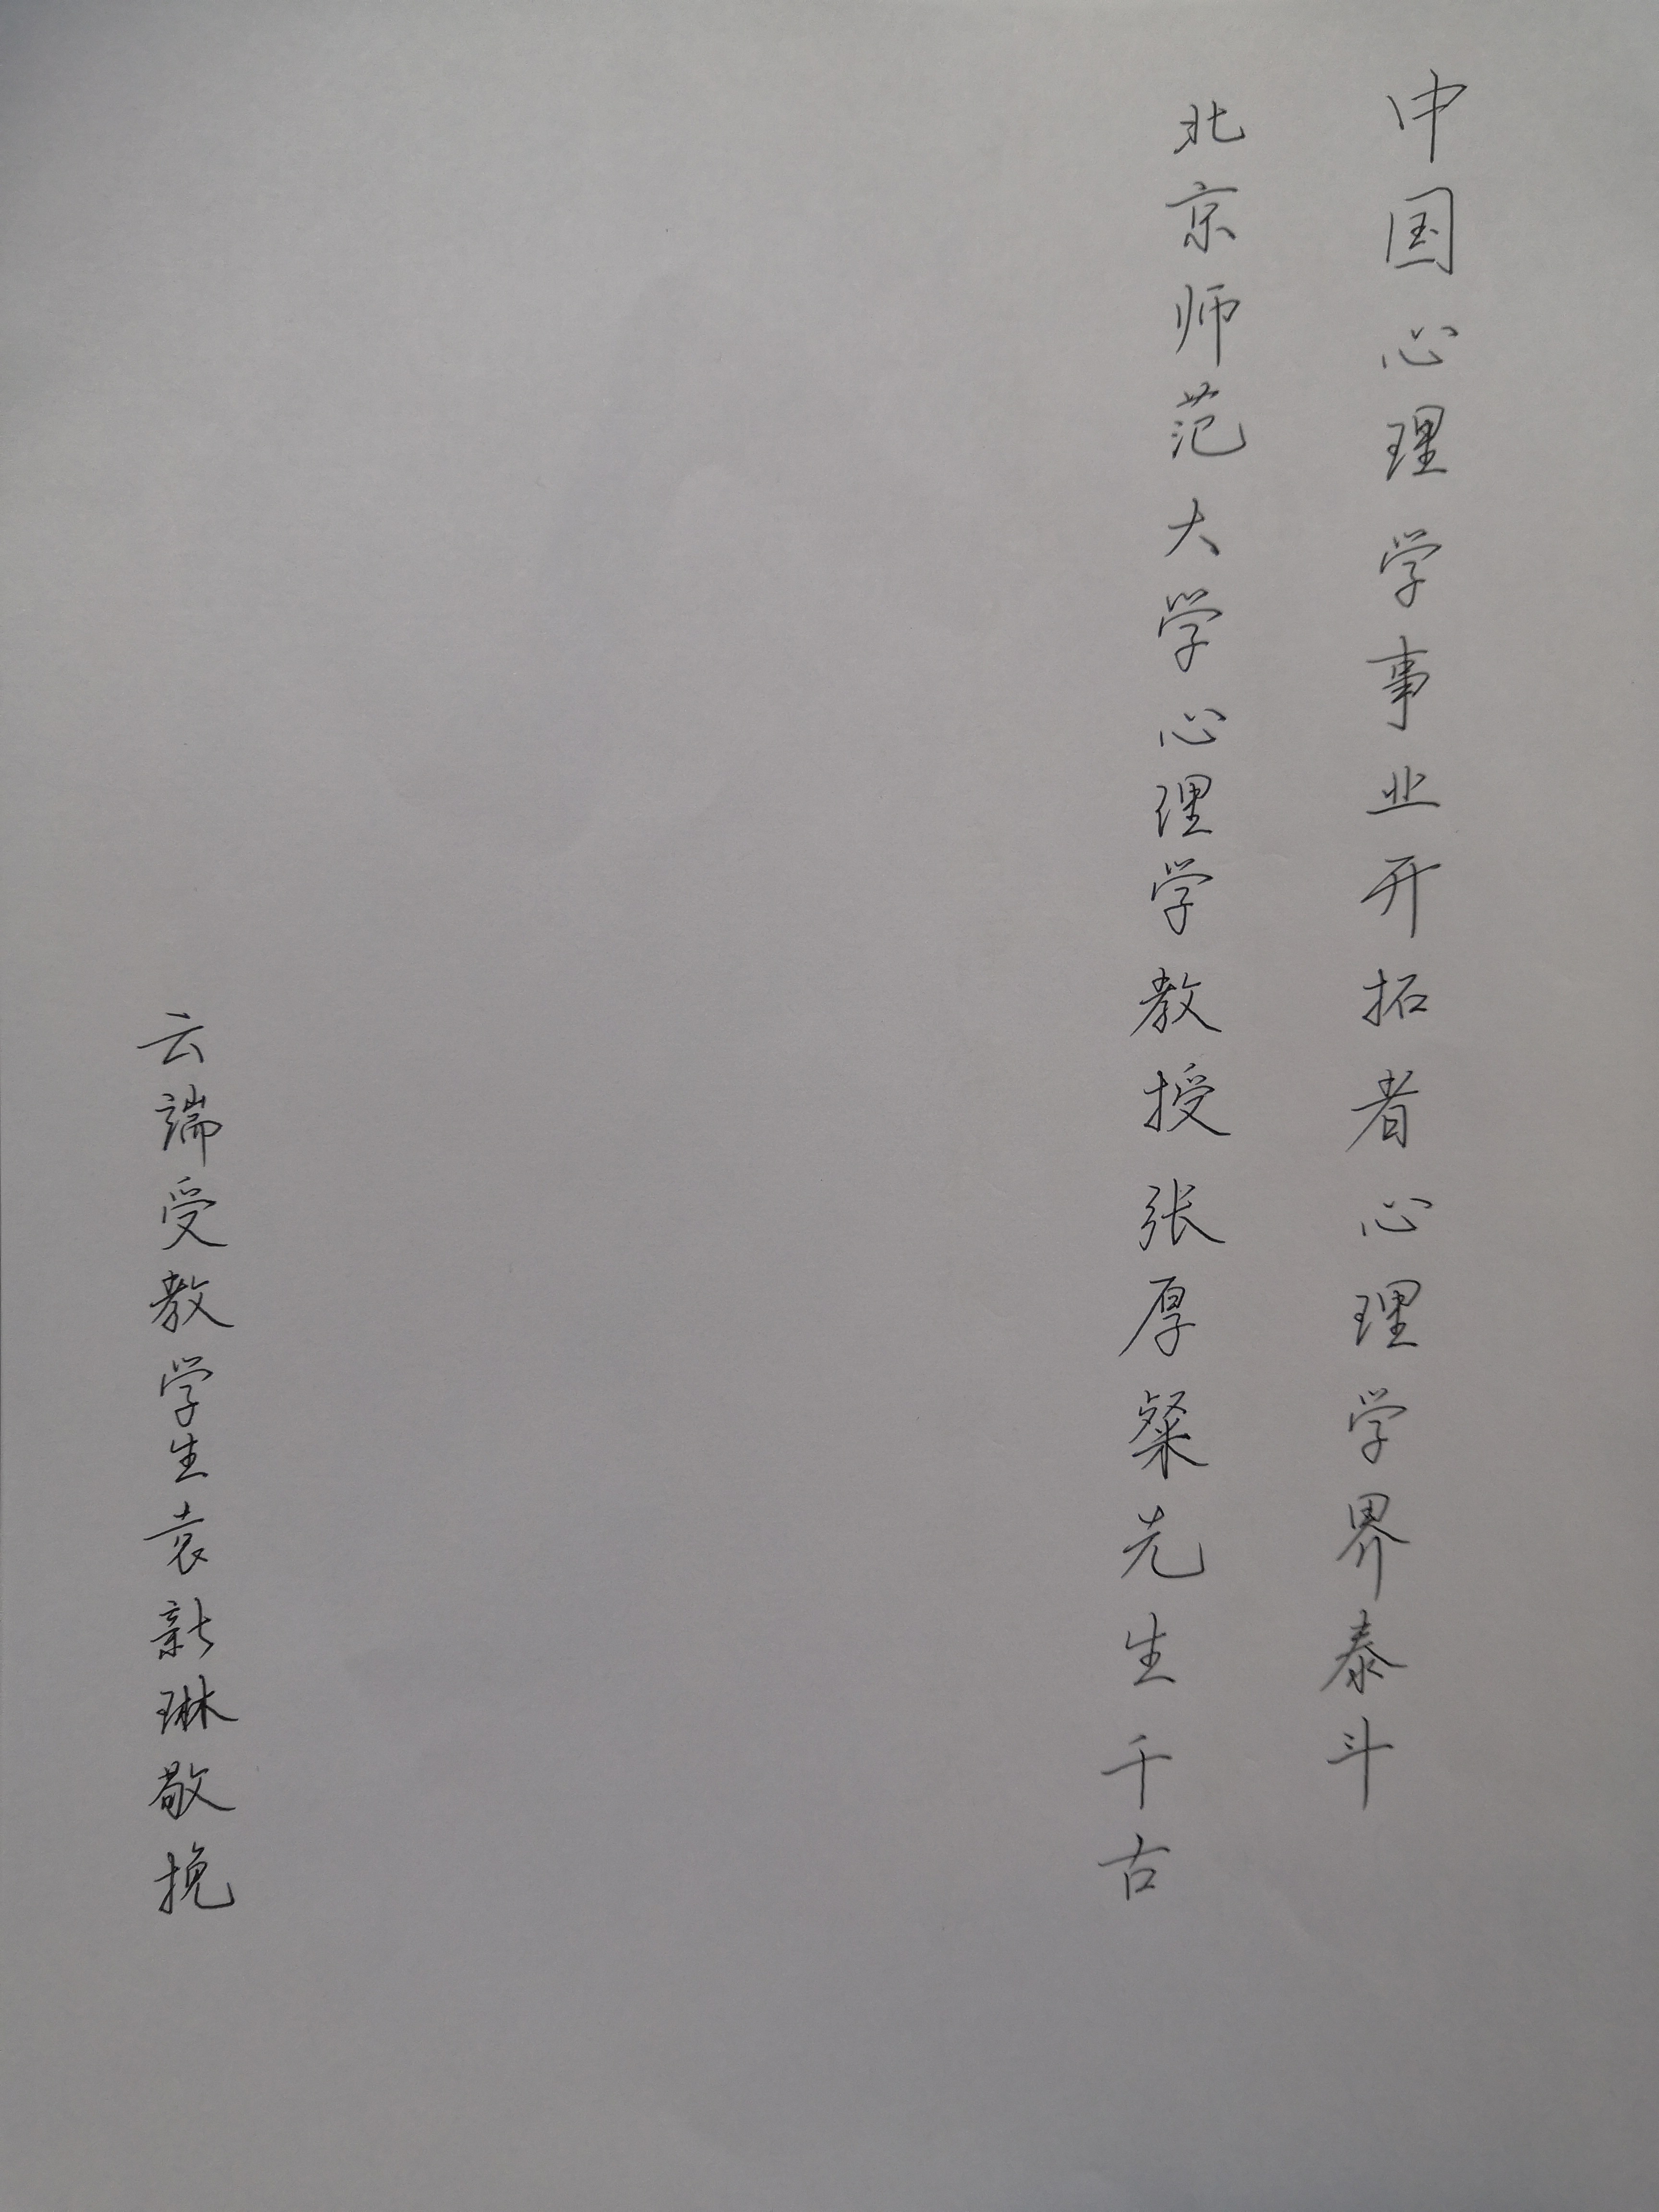 中国心理学事业开拓者心理学界泰斗
北京师范大学心理学教授张厚粲先生千古
云端受教学生袁新琳敬挽